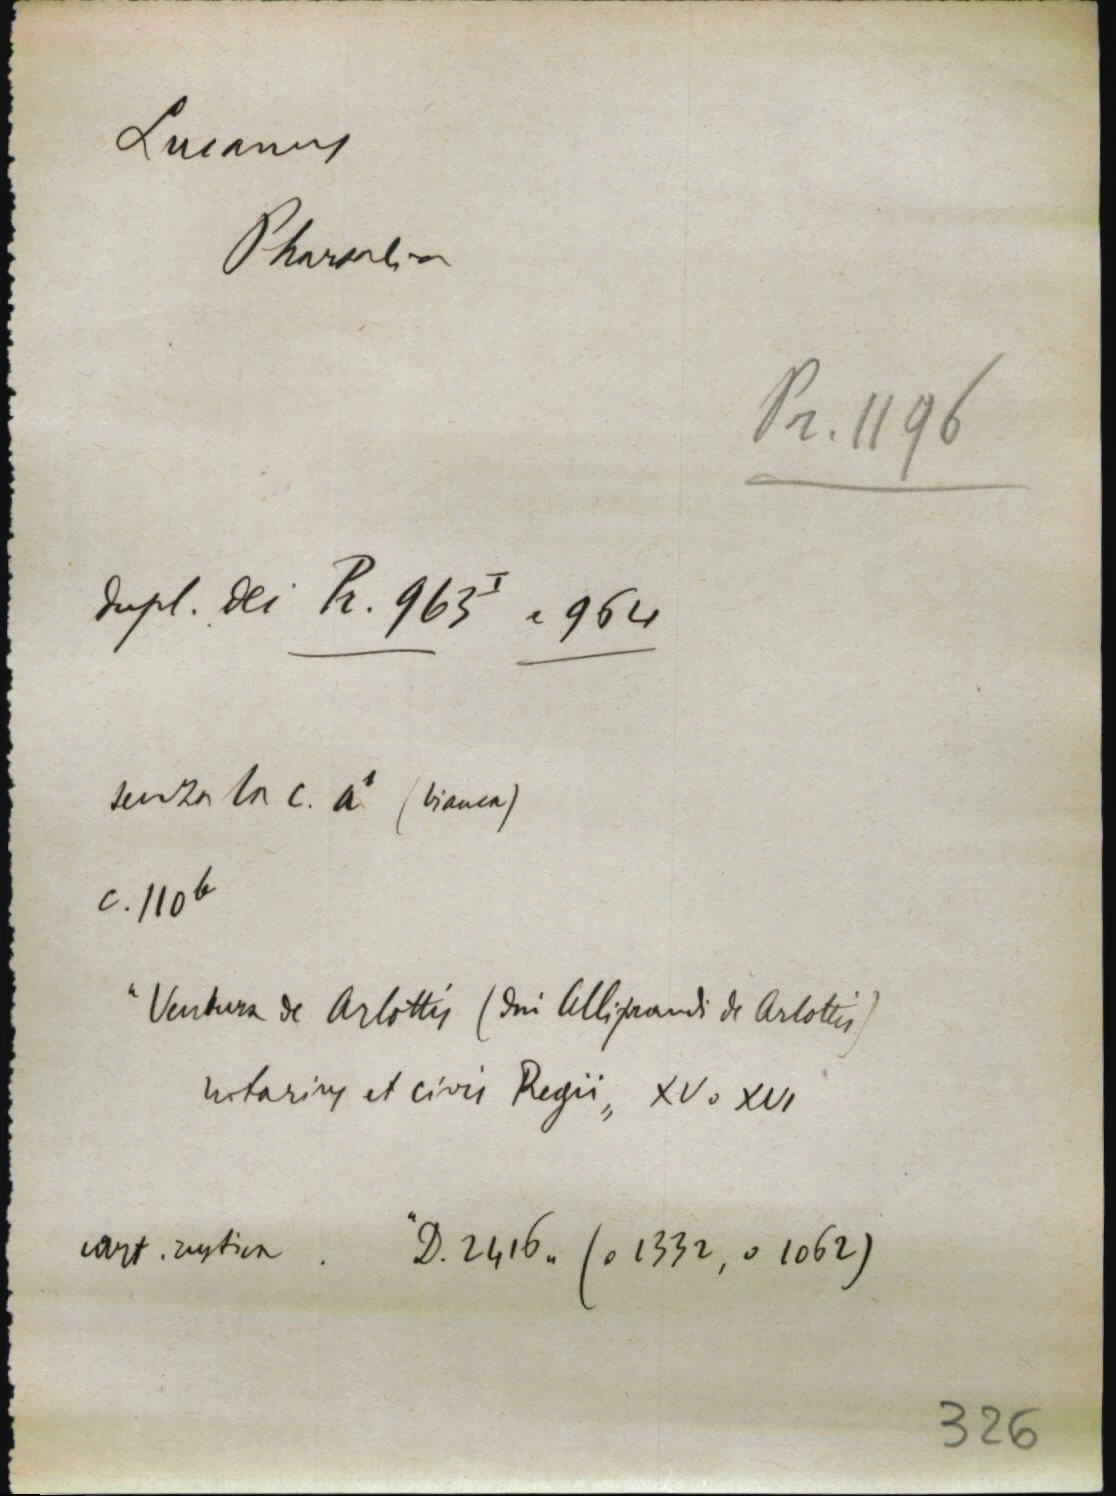 Lucanus
Pharsalia
Pr. 1196
dupl. dei Pr. 963 I e 964
senza la c. a¹ (bianca)
c. 110ᵇ
"Ventura de Arlottis (dni Alliprandi de Arlottis)
notarius et civis Regii„ XV o XVI
cart. rustica . "D. 2416„ (o 1332, o 1062)
326